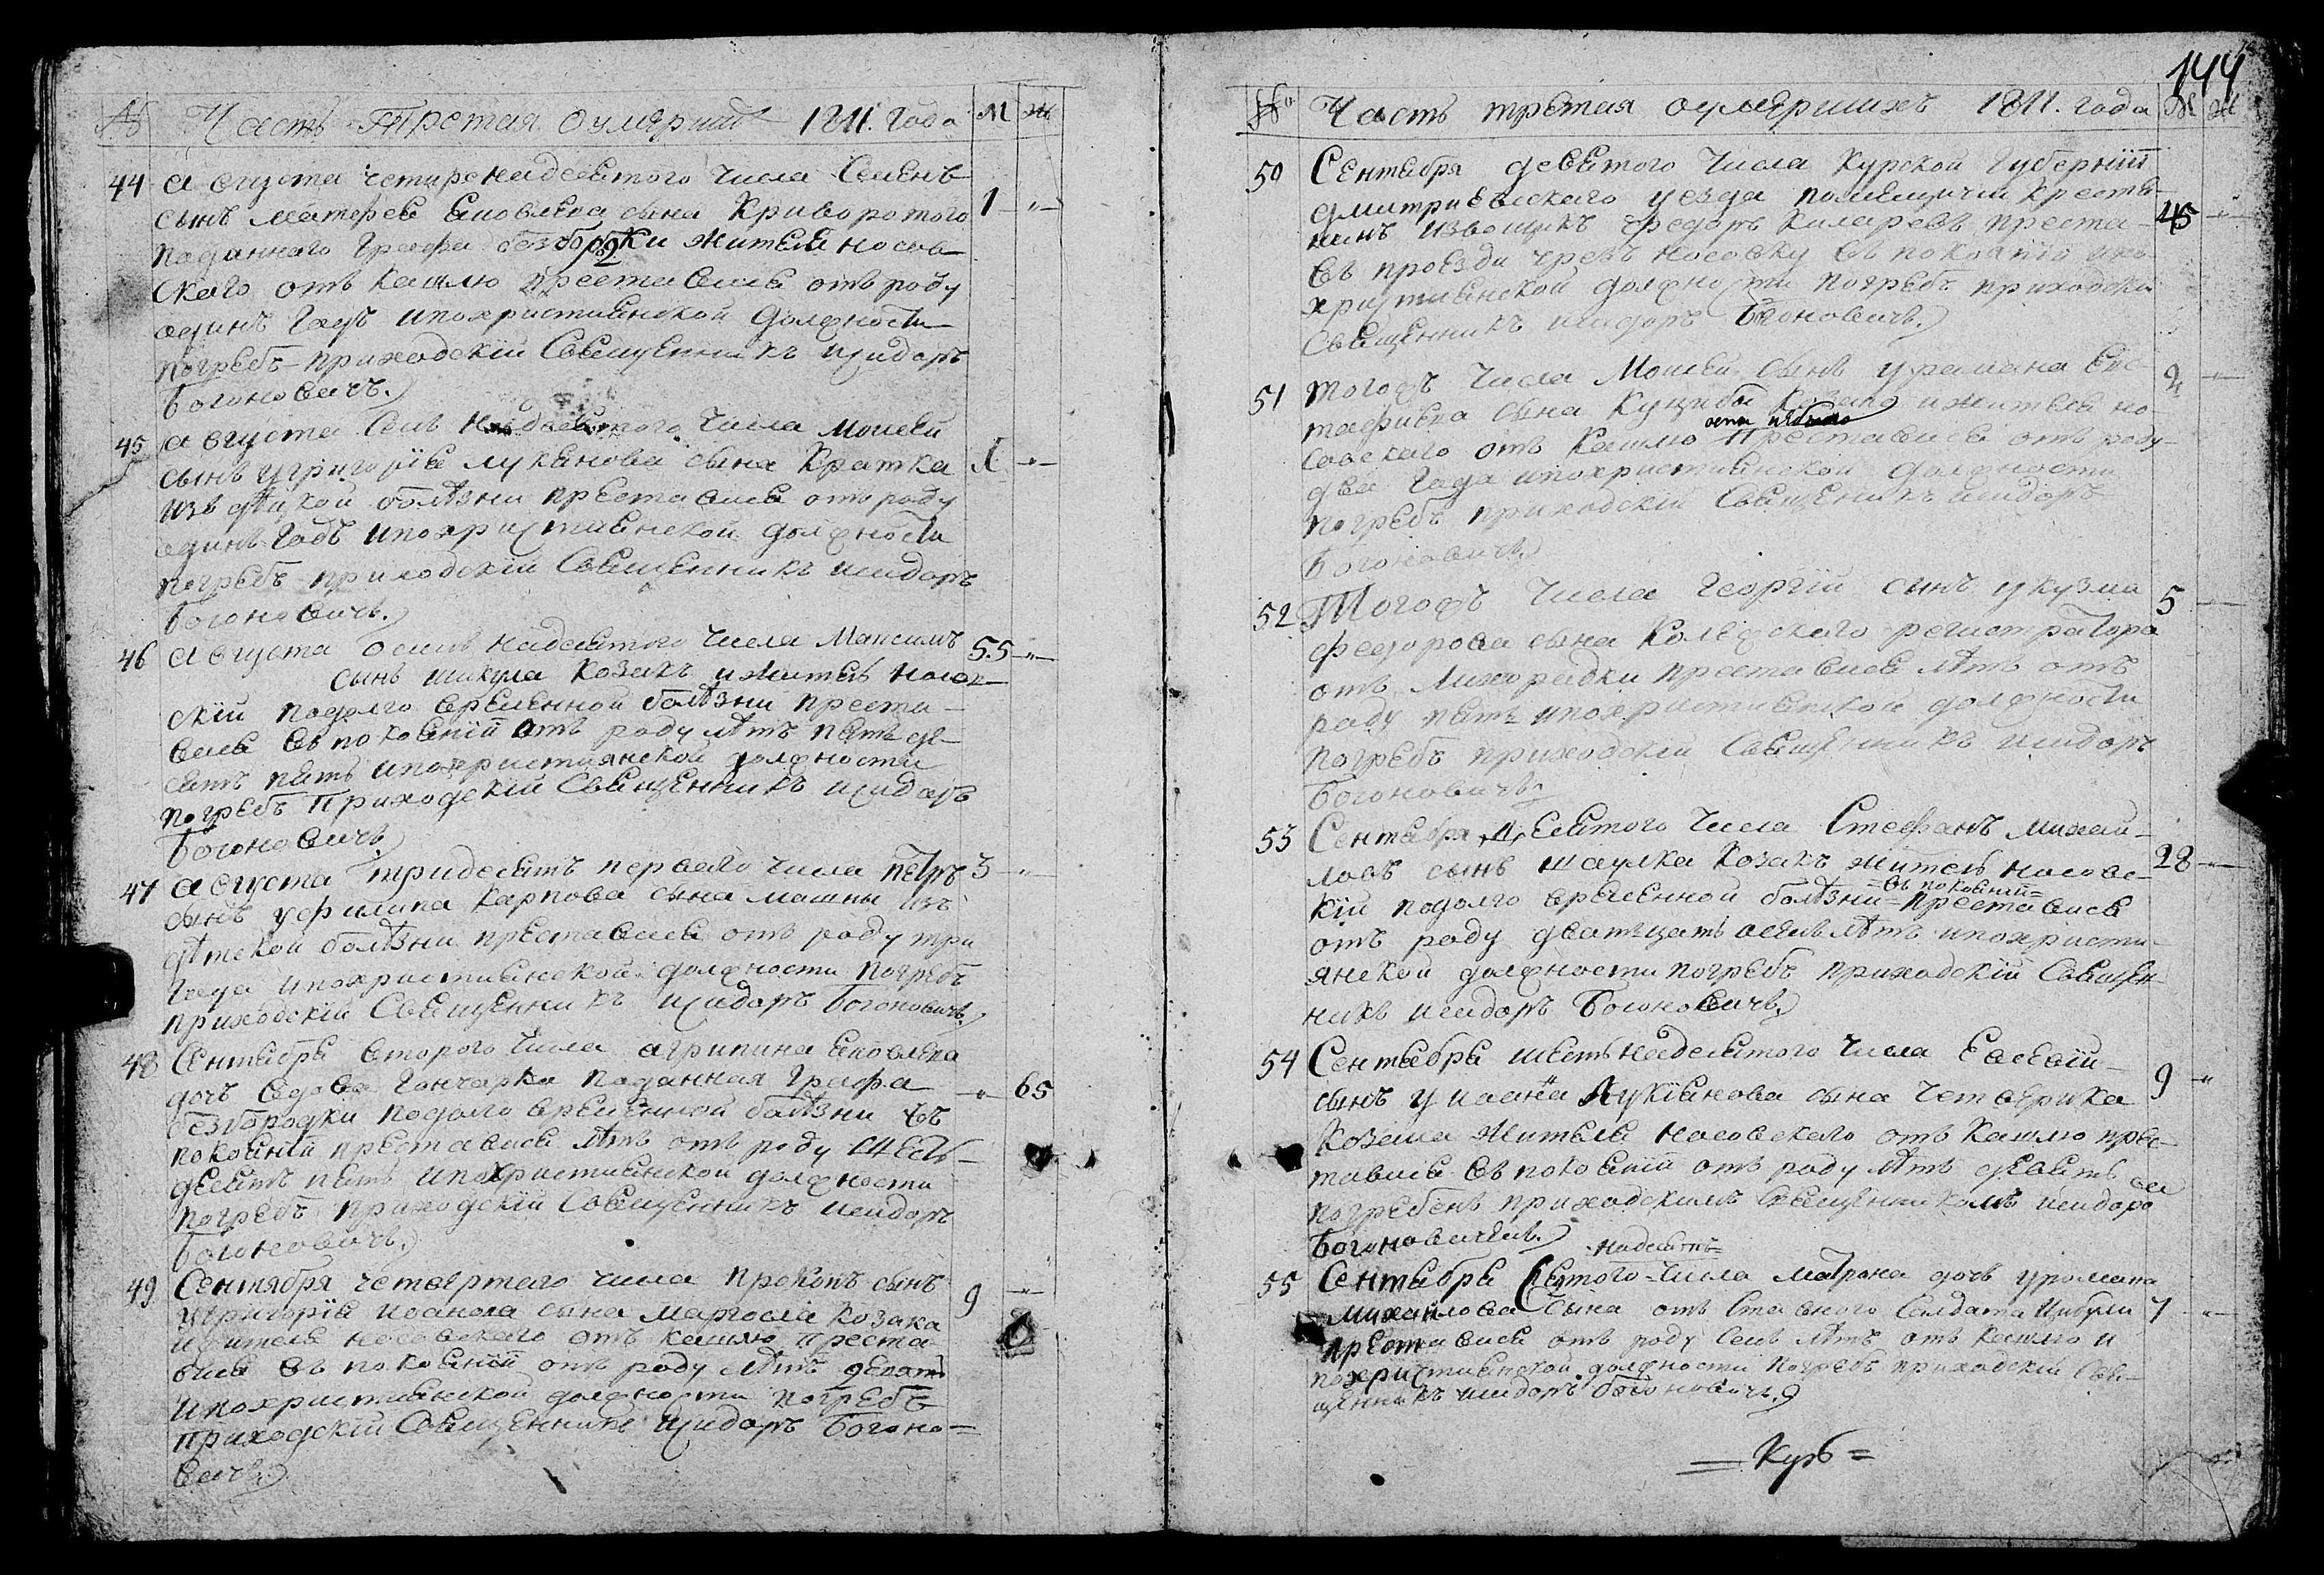 № Часть Третая оумерших 1811. года М Ж
44 августа четиренадесятого числа Семенъ
сынъ Матфея Яковлева сына Криворотого 1 "
подданного Графа безбородки жителя носов-
ского отъ кашлю преставися отъ роду
одинъ годъ ипохристиянской должности
погребъ приходскій Священникъ исидоръ
Богоновичъ.
45 августа семнадесятого числа Моисей
сынъ у григорія лукянова сына Кратка 1 "
изъ дѣцкой болѣзни преставися отъ роду
одинъ годъ ипохристиянской должности
погребъ приходскій Священникъ исидоръ
Богоновичъ.
46 августа осмнадесятого числа Максимъ 55 "
сынъ шикула козакъ ижитель носов-
скій подолго временной болѣзни преста-
вися въ покояніи отъ роду лѣтъ пятьде-
сятъ пять ипохристиянской должности
погребъ Приходскій Священникъ исидоръ
Богоновичъ
47 августа тридесятъ первого числа петръ 3 "
сынъ уфилипа карпова сына машны изъ
дѣтской болѣзни преставися отъ роду три
года ипохристиянской должности погребъ
приходскій Священникъ исидоръ Богоновичъ.
48 Сентября второго числа агрипина яковлева
дочъ вдова Гончарка подданная Графа " 65
безбородки подолго временной болѣзни въ
покояніи преставися лѣтъ отъ роду шесть-
десятъ пять ипохристиянской должности
погребъ приходскій Священникъ исидоръ
Богоновичъ.
49 Сентября четвертаго числа прокопъ сынъ
угригорія иоанова сына козака 9 "
ижителя носовского отъ кашлю преста-
вися въ покояніи отъ роду лѣтъ девять
ипохристиянской должности погребъ
приходскій Священникъ исидоръ Богоно-
вичъ.
144
№ Часть третая оумершихъ 1811. года М Ж
50 Сентября девятого числа Курской Губерніи
дмитриевского уезда помещичій крестя-
нинъ извощикъ федоръ преста- 45 "
въ проезди чрезъ носовку въ покояніи ипо
християнской должности погребъ приходски
Священникъ исидоръ Богоновичъ.
51 тогожъ числа Моисей сынъ уромана Евс- 2 "
тафиева сына козака ижителя но-
совского отъ кашлю преставися отъ роду
два года ипохристиянской должности
погребъ приходскій Священникъ исидоръ
Богоновичъ
52 Тогожъ числа георгій сынъ укузми 5 "
федорова сына Колежского регистратора
отъ лихорадки преставися лѣтъ отъ
роду пять ипохристиянской должности
погребъ приходскій Священникъ исидоръ
Богоновичъ.
53 Сентября десятого числа Стефанъ михай-
ловъ сынъ шаулка козакъ житель носовс- 28 "
=въ покояніи=
кій подолго временной болѣзни преставися
отъ роду дватцать осемъ лѣтъ ипохристи-
янской должности погребъ приходскій Священ-
никъ исидоръ Богоновичъ.
54 Сентября шестьнадесятого числа Евсевій
сынъ у иоанна Лукіянова сына Четверика 9 "
козака жителя носовского отъ кашлю прес-
тавися въ покояніи отъ роду лѣтъ девять
погребенъ приходскимъ Священникомъ исидоро
Богоновичемъ.
надесять
55 Сентября Семого числа Матрона дочъ уромана
Михайлова сына отъ ставного салдата Цибули 7 "
преставися отъ роду семь лѣтъ отъ кашлю и
похристиянской должности погребъ приходскій Свя-
щенникъ исидоръ Богоновичъ.